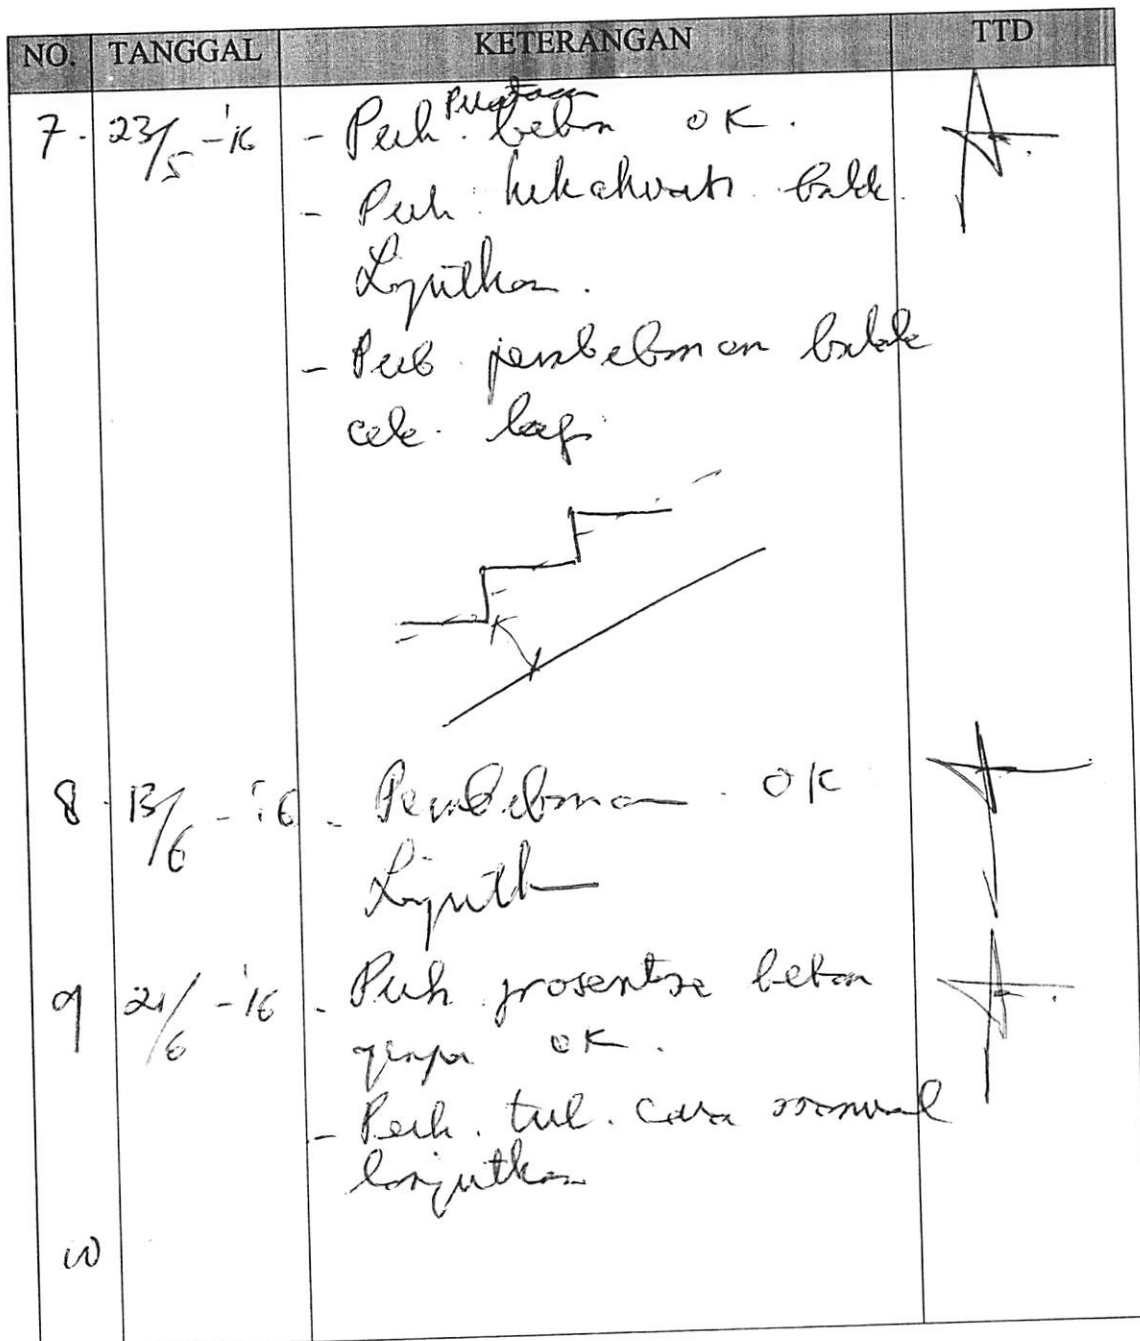 NO. TANGGAL KETERANGAN TTD
7. 23/5 - '16 - Perh. Perataan beban OK.
- Perh. kekakuan balok
Lanjutkan.
- Perb. pembebanan balok
cek lagi
8. 13/6 - '16 - Pembebanan OK
Lanjutk
9 21/6 - '16 - Perh prosentase beban
gempa OK.
- Perh. tul. cara manual
lanjutkan
10